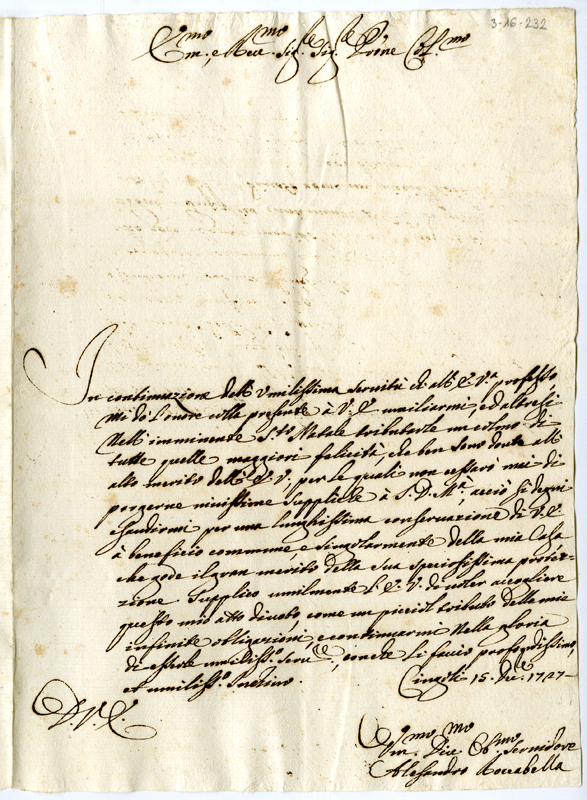 3-16-232
Em.mo, e Rev.mo Sig.re Sig.re Prone Col.mo
In continuazione dell' Umilissima servitù che all' E. V.a professo,
mi dò l'onore colla presente à V. E. umiliarmi, ed altresì
nell' imminente S.to Natale tributarle un colmo di
tutte quelle maggiori felicità, che ben sono dovute all'
alto merito dell' E. V., per le quali non cesserò mai di
porgerne vivissime suppliche à S. D. M.a acciò si degni
esaudirmi per una lunghissima conservazione di V. E.
à beneficio commune e singolarmente della mia Casa
che gode il gran merito della Sua speciosissima protez-
zione. Supplico umilmente l' E. V. di voler accogliere
questo mio atto divoto, come un picciol tributo delle mie
infinite obligazioni, e continuarmi nella gloria
di essere umiliss.o Serv.re, come le faccio profondissimo,
et umiliss.o inchino. Cingoli 15. Dec.bre 1727
D. V. E.
Um. Div. Ob.mo Servidore
Alesandro Roccabella